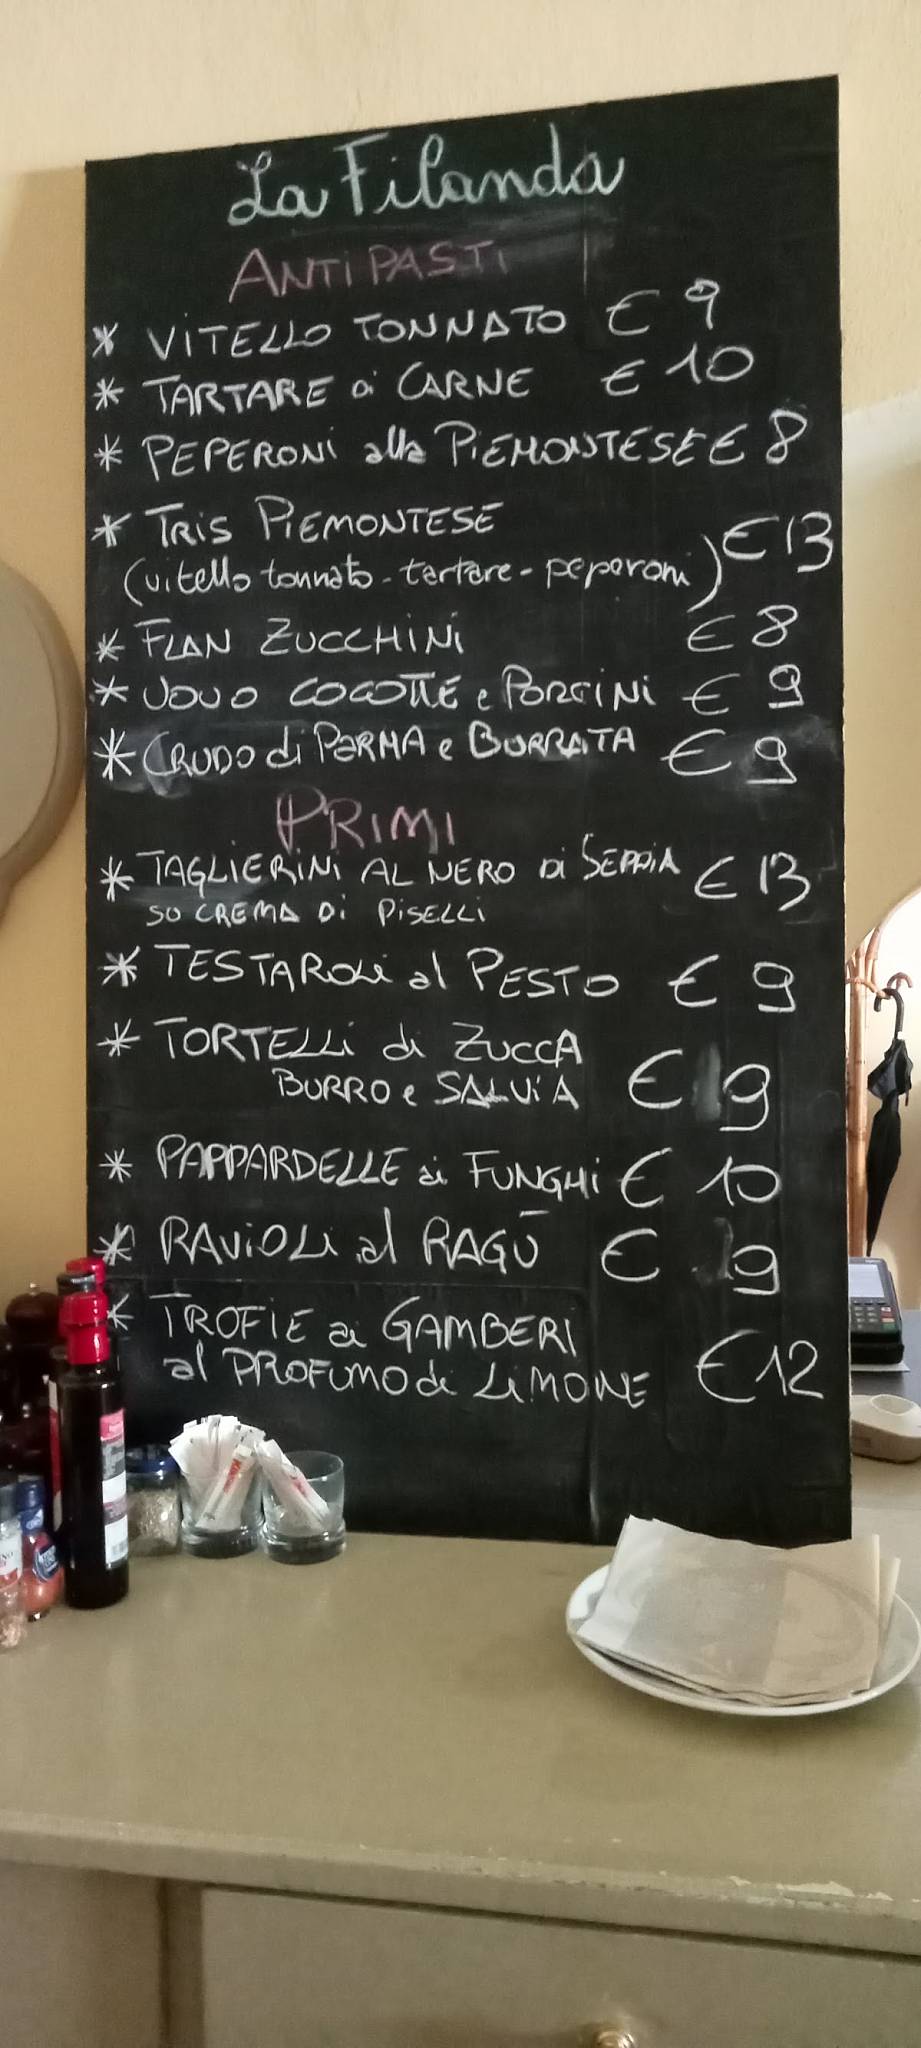 La Filanda
ANTIPASTI
* VITELLO TONNATO € 9
* TARTARE di CARNE € 10
* PEPERONI alla PIEMONTESE € 8
* TRIS PIEMONTESE
(vitello tonnato - tartare - peperoni) € 13
* FLAN ZUCCHINI € 8
* UOVO COCOTTE e PORCINI € 9
* CRUDO di PARMA e BURRATA € 9
PRIMI
* TAGLIERINI AL NERO DI SEPPIA € 13
SU CREMA DI PISELLI
* TESTAROLI al PESTO € 9
* TORTELLI di ZUCCA
BURRO e SALVIA € 9
* PAPPARDELLE ai FUNGHI € 10
* RAVIOLI al RAGÙ € 9
* TROFIE ai GAMBERI
al PROFUMO di LIMONE € 12